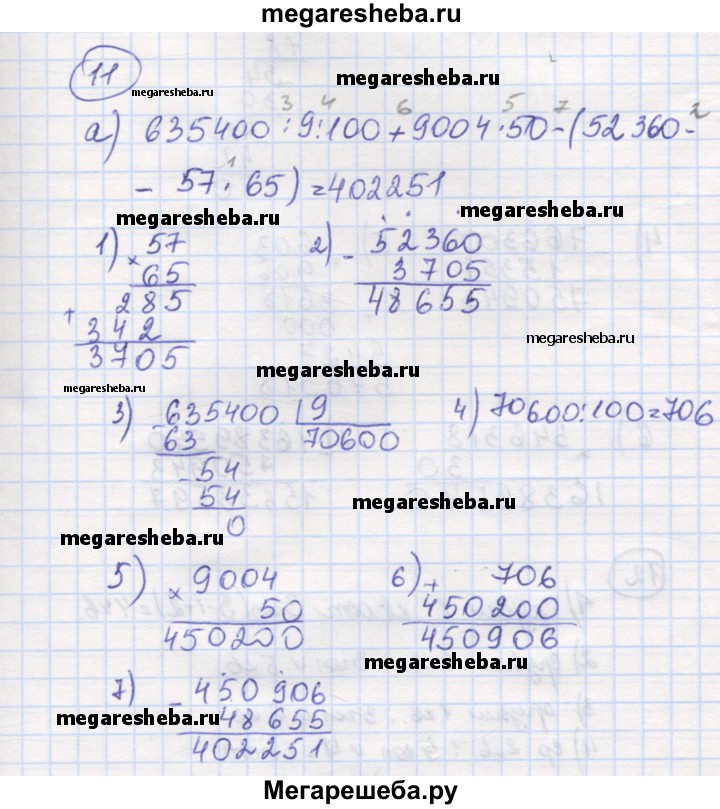 megaresheba.ru
11
megaresheba.ru
megaresheba.ru
3 4 6 5 7 2
а) 635400:9:100+9004·50-(52360-
1
- 57·65)=402251
megaresheba.ru
1) 57
×
65
285
+
342
3705
2) - 52360
3705
48655
megaresheba.ru
megaresheba.ru
megaresheba.ru
3) -635400 9
63 70600
-54
54
0
4) 70600:100=706
megaresheba.ru
megaresheba.ru
5) × 9004
50
450200
6) + 706
450200
450906
megaresheba.ru
7) - 450906
48655
402251
megaresheba.ru
Мегарешеба.ру